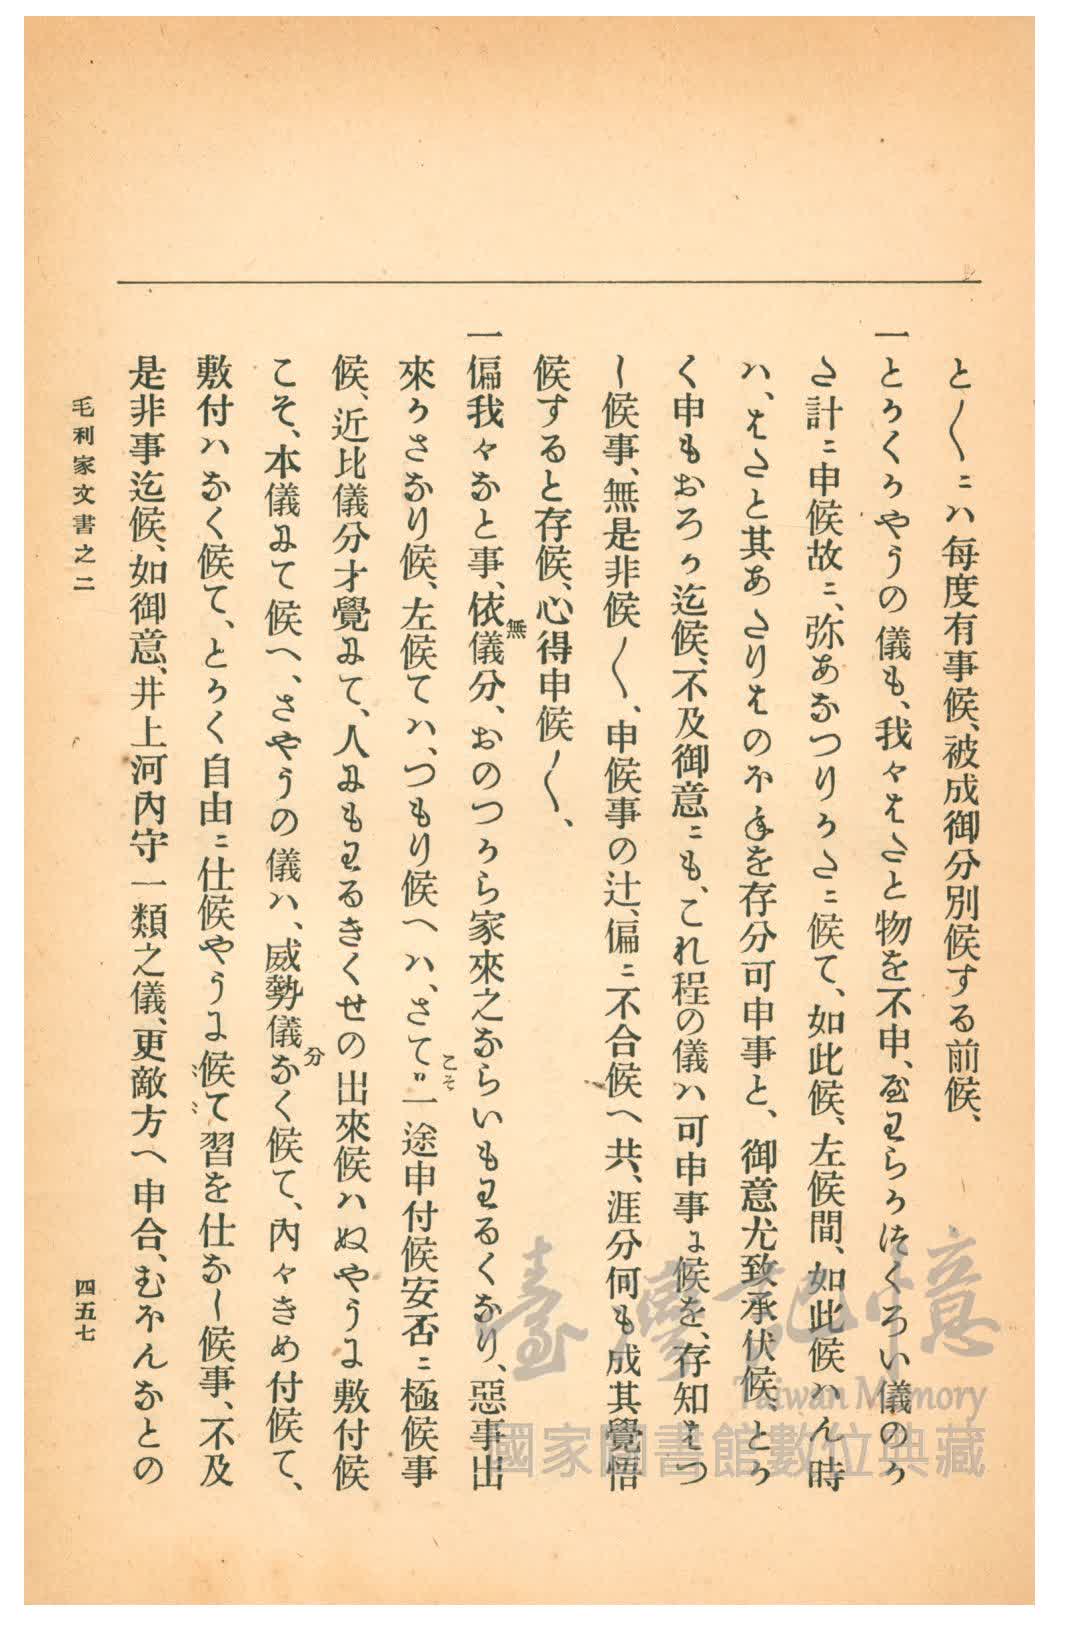 と〳〵ニハ毎度有事候、被成御分別候する前候、
一とかくかやうの儀も、我々はたと物を不申、やわらかはくろい儀のか
た計ニ申候故ニ、弥あなつりかたニ候て、如此候、左候間、如此候ハん時
ハ、はたと其あたりはのほねを存分可申事と、御意尤致承伏候、とか
く申もおろか迄候、不及御意ニも、これ程の儀ハ可申事に候を、存知はつ
し候事、無是非候〳〵、申候事の辻、偏ニ不合候へ共、涯分何も成其覺悟
候すると存候、心得申候〳〵、
一偏我々なと事、依無儀分、おのつから家來之ならいもわるくなり、惡事出
來かさなり候、左候てハ、つもり候へハ、さてこそ〃一途申付候安否ニ極候事
候、近比儀分才覺にて、人にもわるきくせの出來候ハぬやうに敷付候
こそ、本儀にて候へ、さやうの儀ハ、威勢儀分なく候て、內々きめ付候て、
敷付ハなく候て、とかく自由ニ仕候やうに候て習を仕なし候事、不及
是非事迄候、如御意、井上河內守一類之儀、更敵方へ申合、むほんなとの
毛利家文書之二
四五七
臺灣記憶
Taiwan Memory
國家圖書館數位典藏